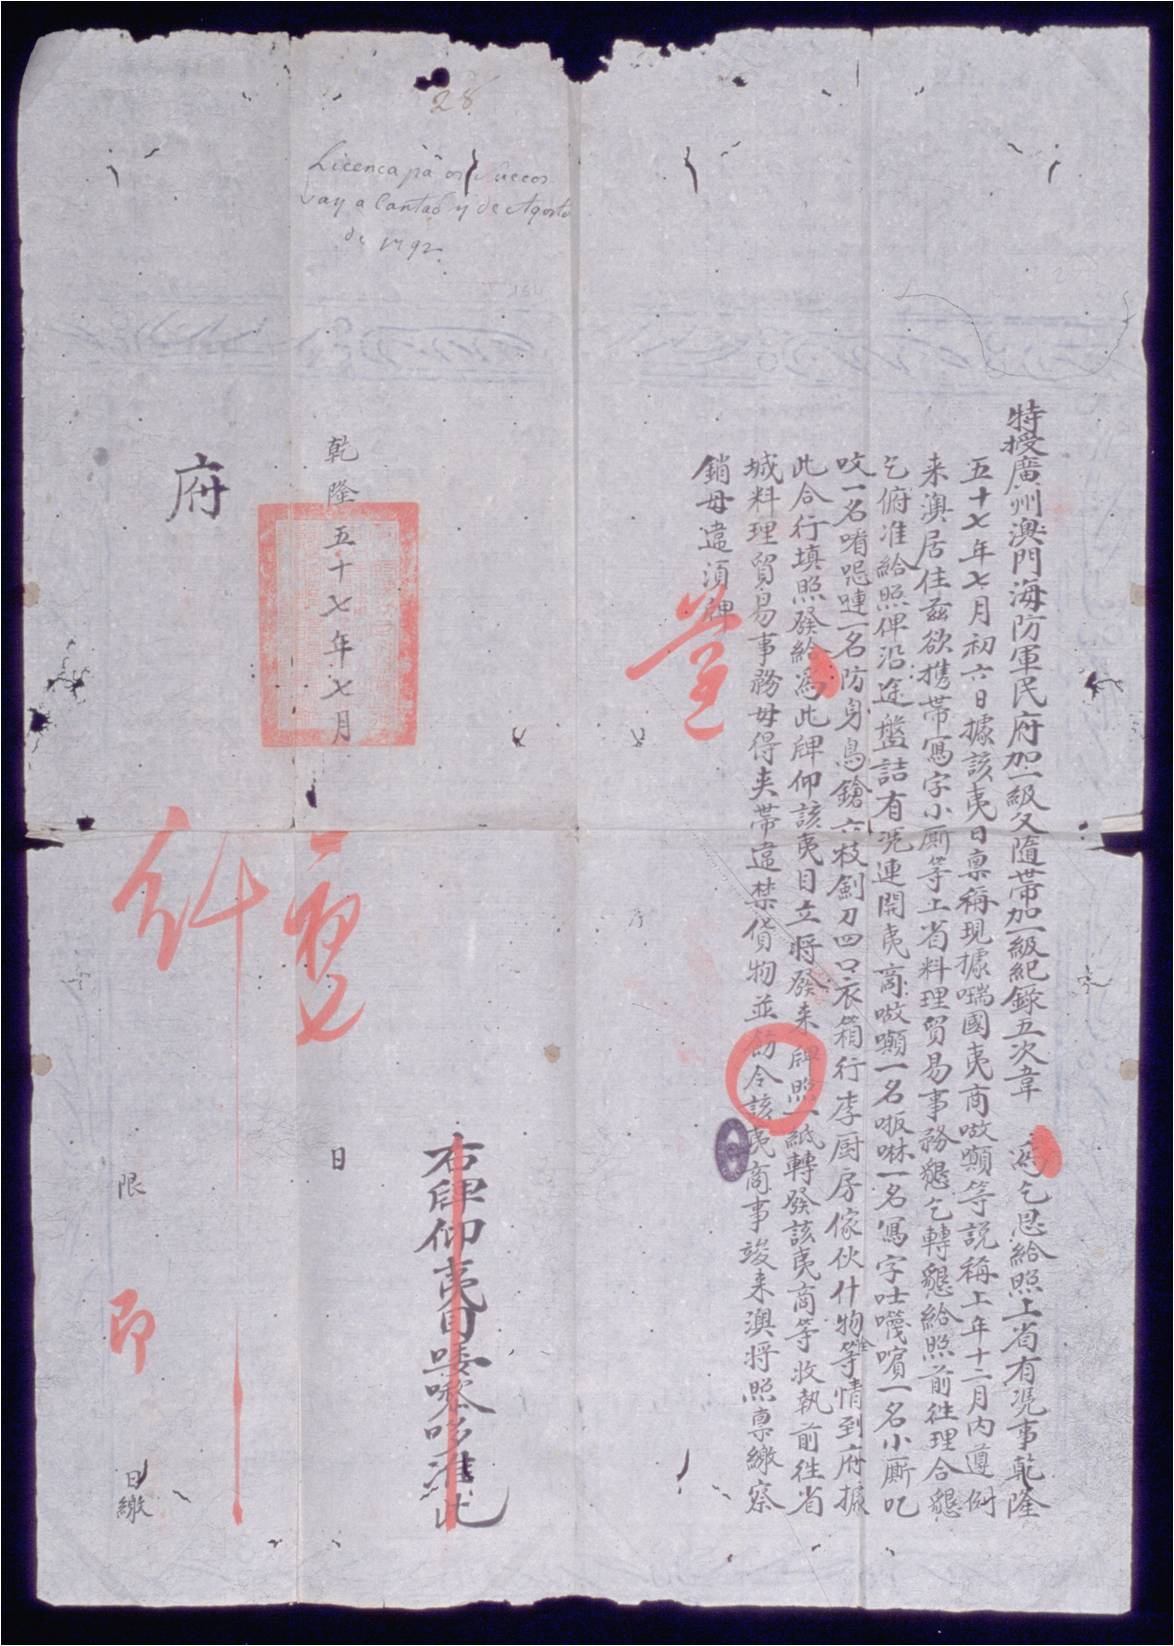 28
Licença pa os Suecos
vay a Cantaõ 7 de Agosto
de 1792
特授廣州澳門海防軍民府加一級又隨帶加一級紀錄五次韋 為乞恩給照上省有凭事乾隆
五十七年七月初六日據該夷目禀稱現據㗐國夷商㗙㘔等説稱上年十二月內遵例
来澳居住茲欲攜帶寫字小廝等上省料理貿易事務懇乞轉懇給照前徃理合懇
乞俯准給照俾沿途盤詰有凭連開夷商㗙㘔一名㕭啉一名寫字吐㘍嚬一名小廝叱
咬一名唷 嗹一名防身鳥鎗六枝劍刀四口衣箱行李厨房傢伙什物全等情到府據
此合行填照發給為此牌仰該夷目立將發来牌照一紙轉發該夷商等收執前徃省
城料理貿易事務毋得夾帶違禁貨物並飭令該夷商事竣来澳將照禀繳察
銷毋違須牌
遵
右牌仰夷目㖿嚟哆准此
乾隆五十七年七月 日
府
限 日繳